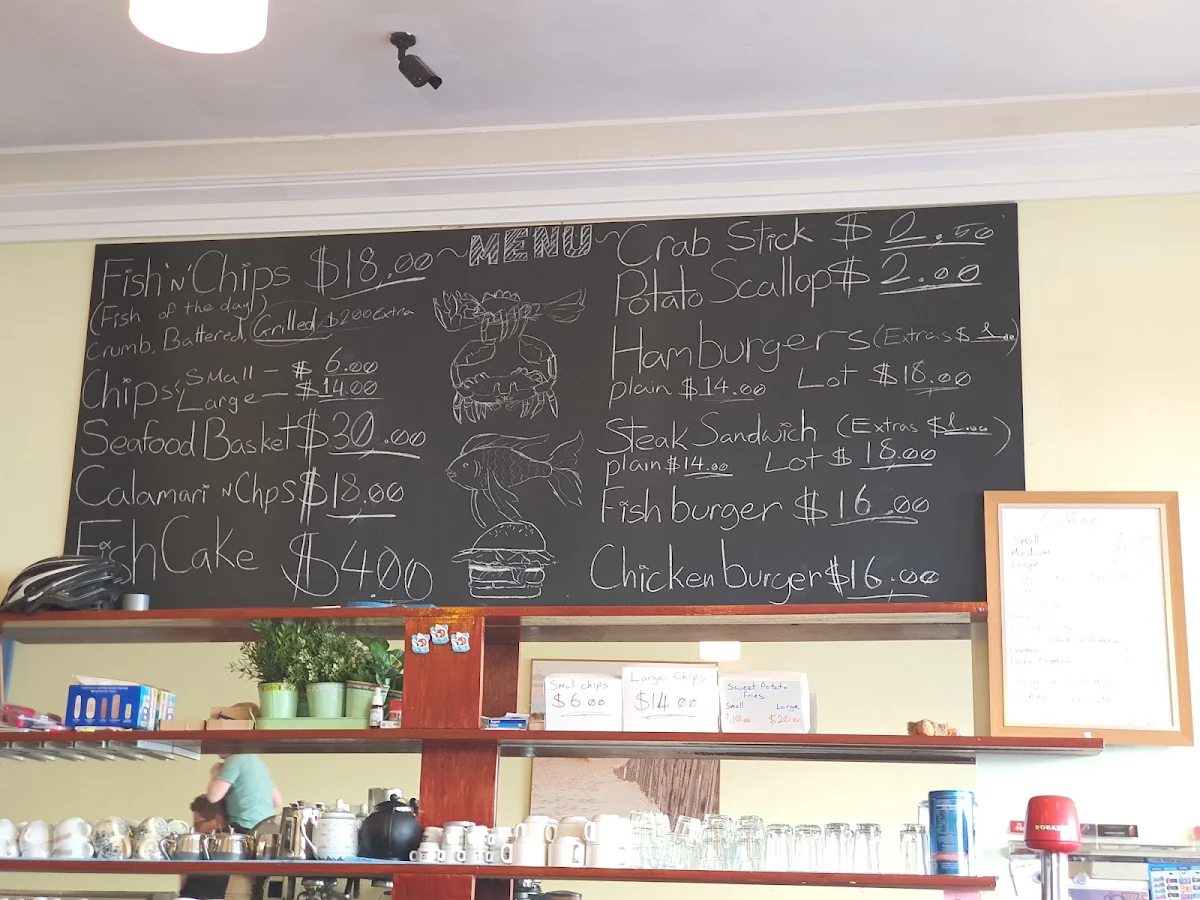 ~MENU~
Fish 'n' Chips $18.00
(Fish of the day)
Crumb, Battered, Grilled $200 Extra
Chips: Small - $6.00
Large - $14.00
Seafood Basket $30.00
Calamari n Chps $18.00
Fish Cake $400
Crab Stick $2.50
Potato Scallop $2.00
Hamburgers (Extras $1.00)
plain $14.00 Lot $18.00
Steak Sandwich (Extras $1.00)
plain $14.00 Lot $18.00
Fishburger $16.00
Chicken burger $16.00
Coffee
Small
Medium
Large
Small chips
$6 00
Large Chips
$14 00
Sweet Potato
fries
Small Large
$10 00 $20 00